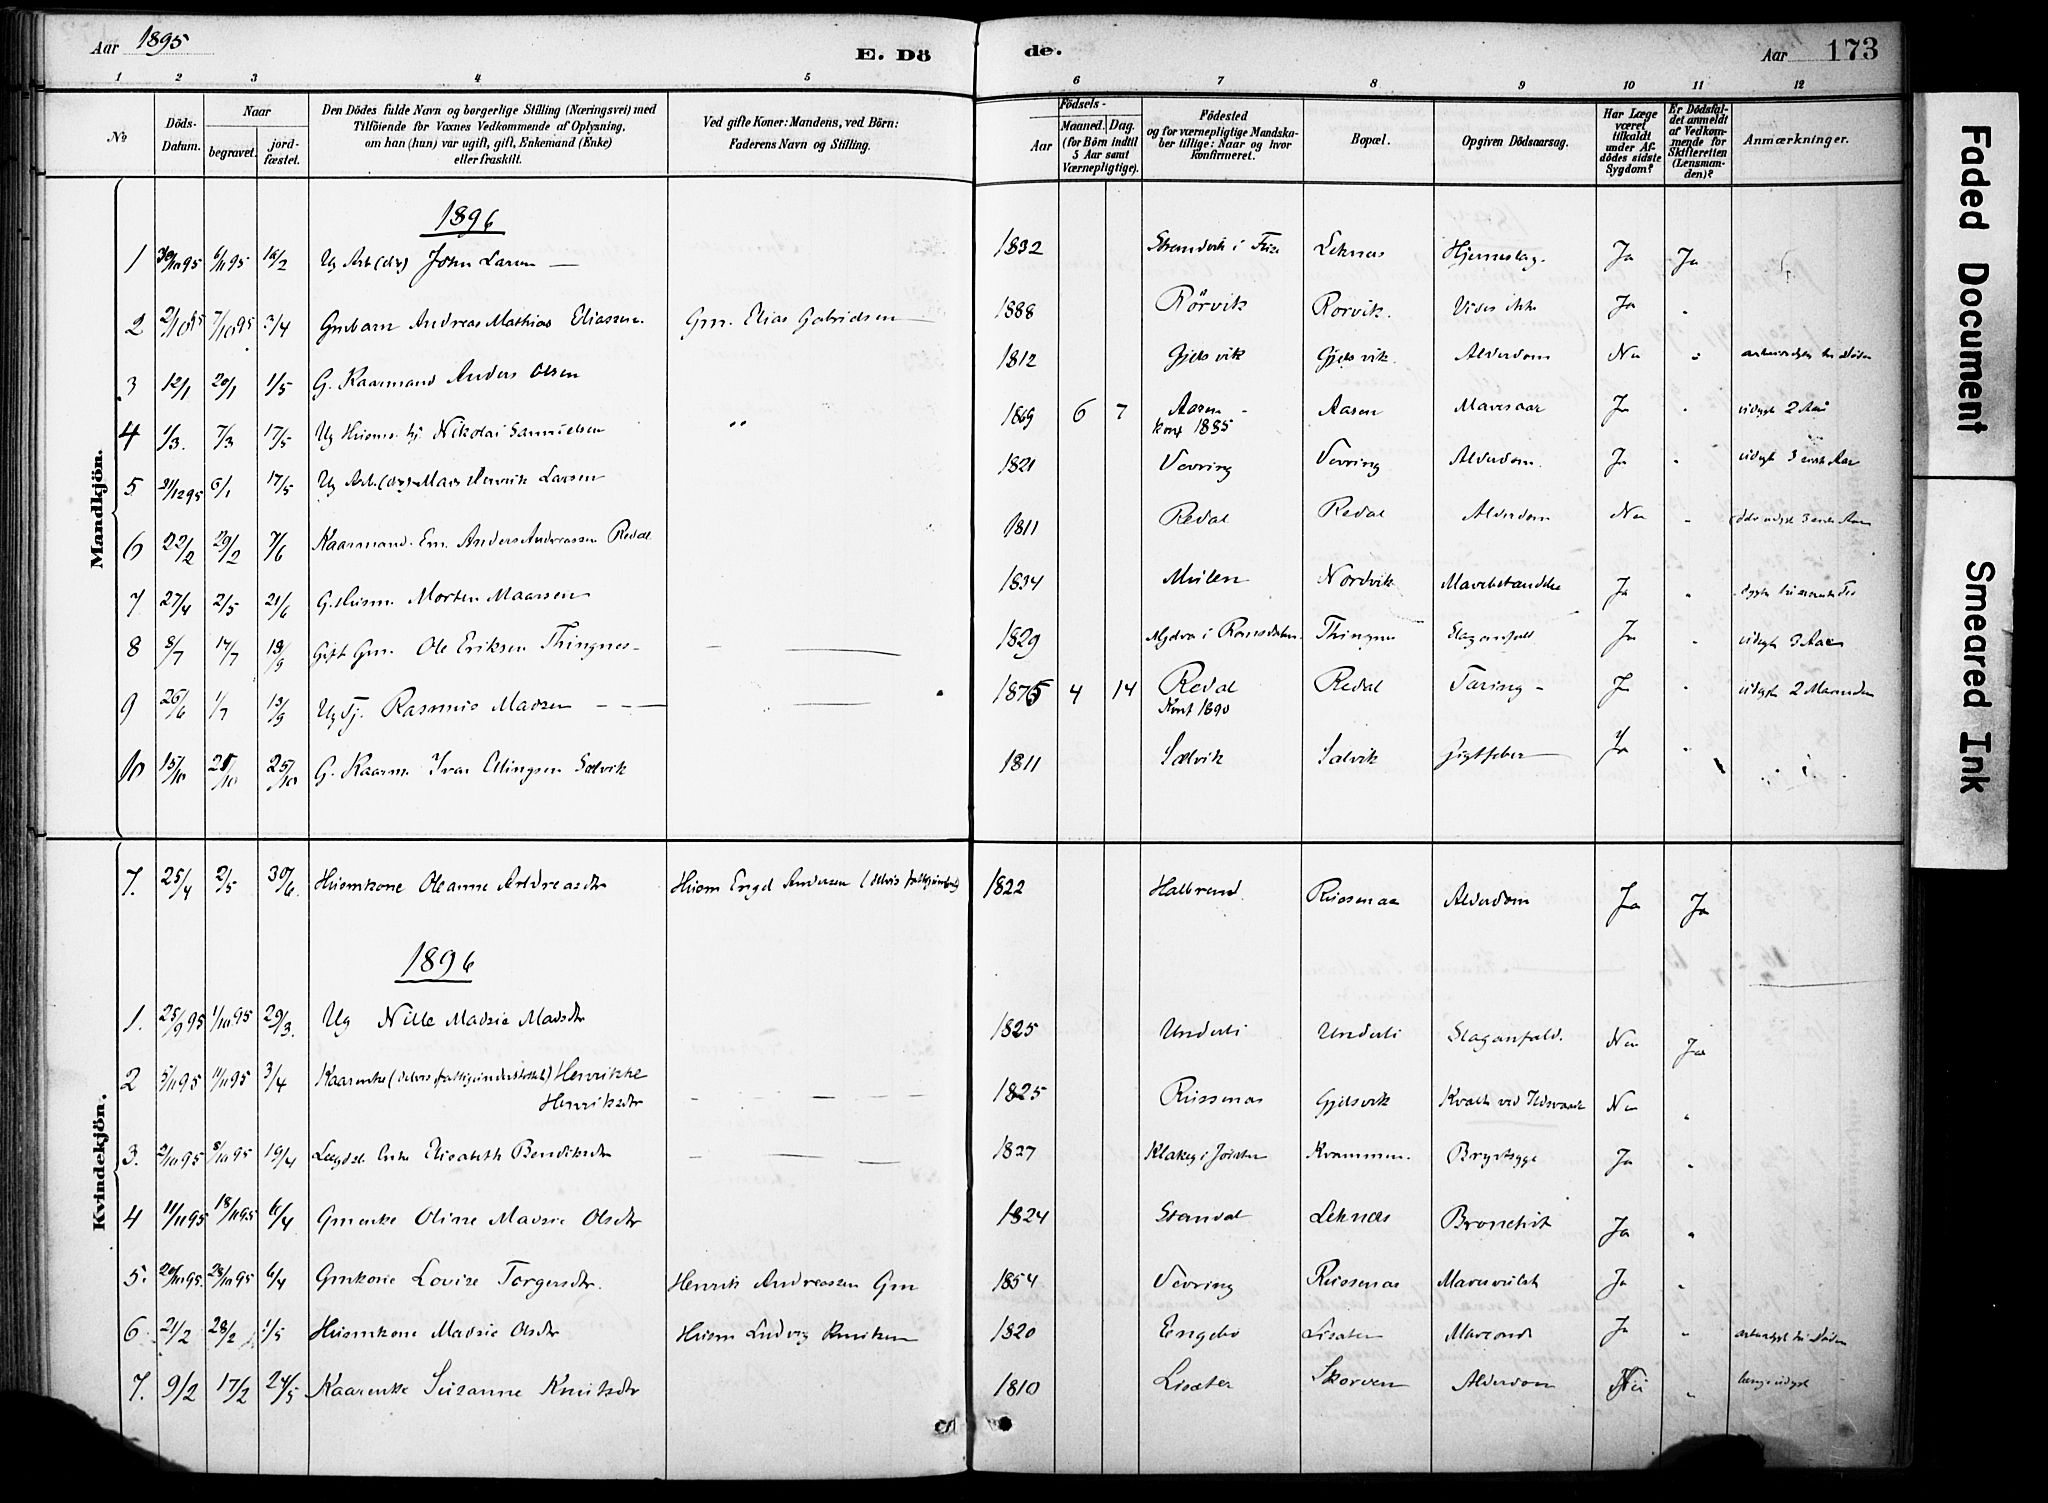 Aar 1895 E. Dö de. Aar 173
1 2 3 4 5 6 7 8 9 10 11 12
No
Döds-Datum.
Naar
begravet. jordfæstet.
Den Dödes fulde Navn og borgerlige Stilling (Næringsvei) med
Tilföiende for Voxnes Vedkommende af Oplysning,
om han (hun) var ugift, gift, Enkemand (Enke)
eller fraskilt.
Ved gifte Koner: Mandens, ved Börn:
Faderens Navn og Stilling.
Födsels-
Aar
Maaned. Dag.
(for Börn indtil
5 Aar samt
Værnepligtige).
Födested
og for værnepligtige Mandskaber
tillige: Naar og hvor
konfirmeret.
Bopæl.
Opgiven Dödsaarsag.
Har Læge
været
tilkaldt
under Afdödes
sidste
Sygdom?
Er Dödsfaldet
anmeldt
af Vedkommende
for
Skifteretten
(Lensmanden)?
Anmærkninger.
Faded Document
Smeared Ink
Mandkjön.
1896
1 30/10 95 6/11 95 16/2 Ug Arb John Larsen 1832 Leknes Hjerneslag Ja Ja
2 2/10 95 7/10 95 3/4 Gmbarn Andreas Mathias Eliassen Gm. Elias Gabrielsen 1888 Rörvik Rorvik. Vides ikke Ja "
3 12/1 20/1 1/5 G. Kaarmand Anders Olsen 1812 Gjelsvik Gjelsvik Alderdom Nei "
4 1/3. 7/3 17/5 Ug Husm. Nikolai Samuelsen " 1869 6 7 Aasen konf 1885 Aasen Mavesaar Ja " 2 Aar
5 31/12 95 6/1 17/5 Ug Arb. Henrik Larsen 1821 Vevring Vevring Alderdom. Ja " 3 Aar
6 22/2 29/2 7/6 Kaarmand. Em. Anders Andreassen Redal 1811 Redal Redal Alderdom Nei "
7 27/4 2/5 21/6 G. Husm. Morten Maarsen 1834 Mulen Nordvik Mavebetændelse Ja "
8 8/7 17/7 13/9 Gift Gm. Ole Eriksen Thingnes 1829 i Romsdalen. Thingnes Slaganfald Ja " 3 Aar
9 26/6 1/7 13/9 Ug Tj. Rasmus Madsen 1875 4 14 Redal Konf 1890 Redal Tæring Ja " 2 Maaneder
10 15/10 21/10 25/10 G. Kaarm. Ivar Sælvik 1811 Sælvik Sælvik Gigtfeber Ja "
Kvindekjön.
7. 25/4 2/5 30/6. Husmkone Oleanne Andreasdtr Husm Engel Andersen 1822 Halbrend Russenes Alderdom Ja Ja
1896
1. 25/9 95 1/10 95 29/3. Ug Nille Madsie Madsdtr 1825 Underli Underli Slaganfald. Nei Ja
2 5/11 95 11/11 95 3/4 Kaarenke (delvis fattigunderstöttet) Henrikke
Henriksdtr 1825 Russenes Gjelsvik Kvalt ved Ildsvaade Nei "
3. 2/10 95 8/10 95 19/4 Enke Elisabeth Bendiksdtr 1827 i Jölster Kvammen. Brystsyge Ja "
4 11/11 95 18/11 95 6/4 Gmenke Oline Madsie Olsdtr 1824 Standal Leknes Bronchit Ja "
5. 20/11 95. 28/11 95 6/4 Gmkone Lovise Torgersdtr. Henrik Andreassen Gm 1854 Vevring Russenes Ja "
6 21/2 28/2 1/5 Husmkone Madsie Olsdtr Husm Ludvig 1820 Engebö Liseter Maveondt Ja "
7. 9/2 17/2 24/5 Kaarenke Susanne Knutsdtr 1810 Liseter Skorven Alderdom Nei "